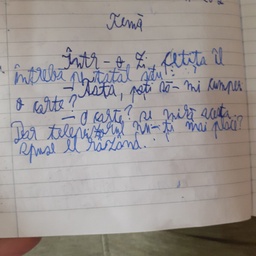 Temă
Într-o zi fetița îl
întreba pe tatăl său:
- Tata, poți să-mi cumperi
o carte?
- O carte? se miră acela.
Dar televizorul nu-ți mai place?
spuse el râzând.